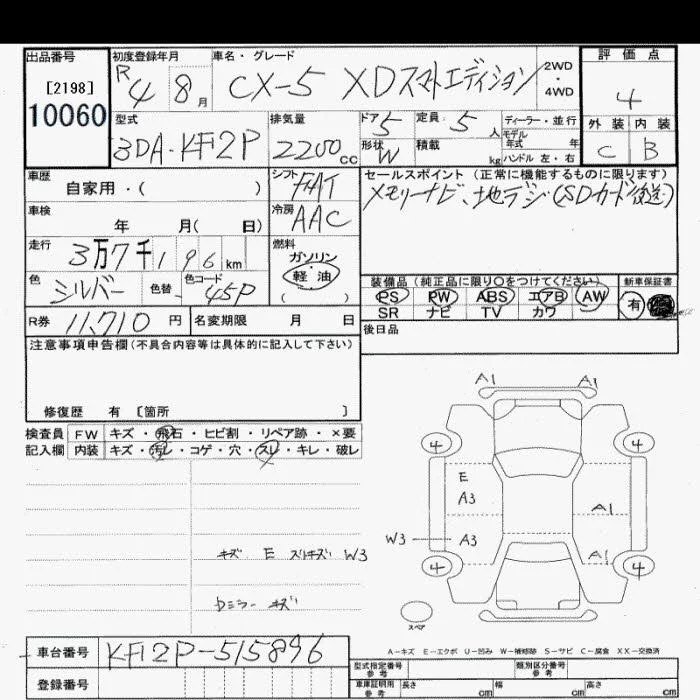 出品番号 初度登録年月 車名・グレード 評価点
[2198] R 4 8月 CX-5 XDスマートエディション 2WD・4WD 4
10060
型式 排気量 ドア 5 定員 5人 ディーラー・並行 外装 内装
3DA-KF2P 2200cc 形状 W 積載 kg モデル年式 年 C B
ハンドル 左・右
車歴 シフト FAT セールスポイント (正常に機能するものに限ります)
自家用・( ) メモリーナビ、地デジ(SDカード後送)
車検 冷房 AAC
年 月( 日)
走行 3万7千196km 燃料 ガソリン・軽油 ( )
色 シルバー 色替 色コード 45P 装備品(純正品に限り○をつけてください) 新車保証書
PS PW ABS エアB AW 有
SR ナビ TV カワ
R券 11,710円 名変期限 月 日 後日品
注意事項申告欄(不具合内容等は具体的に記入して下さい)
修復歴 有 [箇所 ]
検査員 FW キズ・飛石・ヒビ割・リペア跡・×要
記入欄 内装 キズ・汚レ・コゲ・穴・スレ・キレ・破レ
A1 A1
4 4
E
A3 A1
W3 A3 A1
4 4
キズ E スリキズ W3
Dミラー キズ
スペア
A-キズ E-エクボ U-凹み W-補修跡 S-サビ C-腐食 XX-交換済
車台番号 KF2P-515896
登録番号
型式指定番号 参考 類別区分番号 参考
車庫証明用 参考 長さ cm 幅 cm 高さ cm